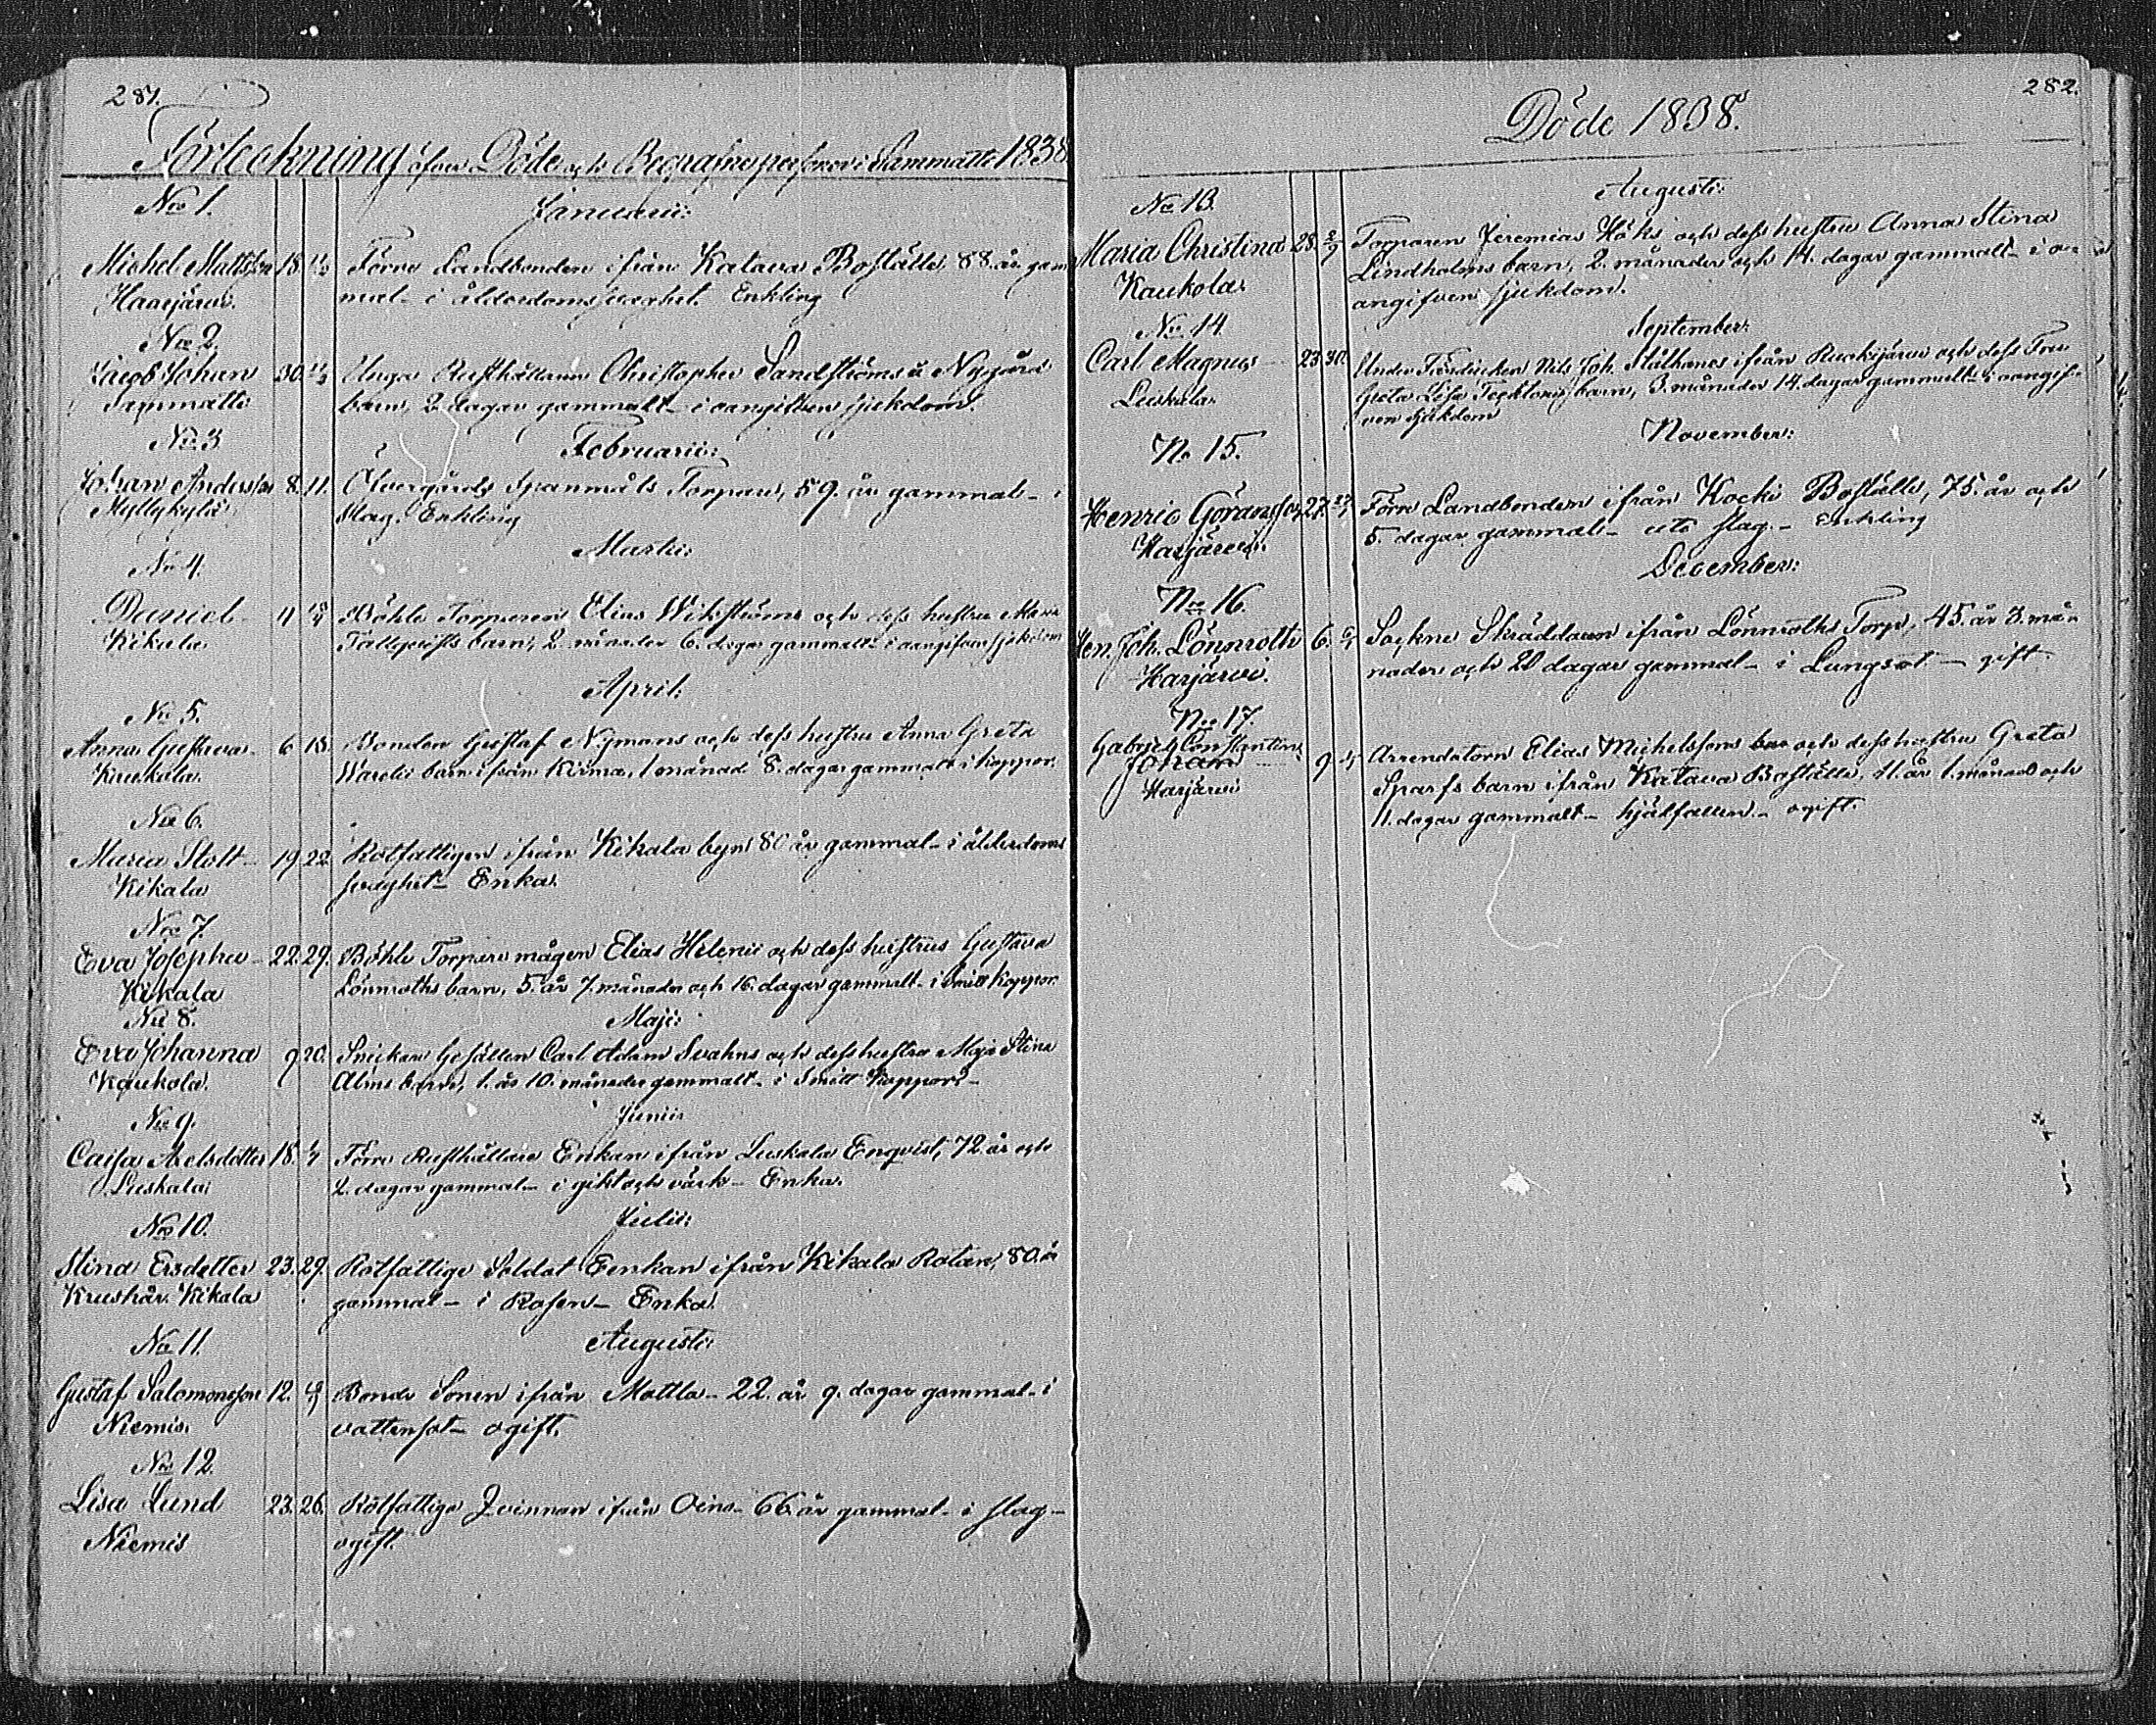 281.
Förteckning öfver Döde och Begrafne personer i Sammatti 1838
No 1.
Januarii:
Michel Mattsson 18. Förra Landbonden ifrån Katava Boställe 88. år gam
Haarjärvi. mal- i ålderdoms svaghet. Enkling
No 2.
Jacob Johan 30. Unga Rusthållaren Christopher Sandströms å Nygård
Sammatti barn, 2 dagar gammalt- i oangifven sjukdom.
No 3
Februarii:
Johan Andersson 8. 11. Öfvergårds Spanmåls Torparen, 59. år gammal- i
Myllykylä slag. Enkling
Martii:
No 4.
Daniel 11 Böhle Torparen Elias Wikströms och dess hustru
Kikala. Tallqvists barn, 2. månader 6. dagar gammalt- i oangifven sjukdom
April:
No 5.
Anna Gustava. 6 15. Bonden Gustaf Nymans och dess hustru Anna Greta
Kaukola. barn ifrån Kirma, 1 månad 8. dagar gammalt i koppor.
No 6.
Maria Stolt- 19. 22. Rotfattigen ifrån Kikala byn 80 år gammal- i ålderdoms
Kikala svaghet- Enka.
No 7
Eva Josepha- 22. 29. Böhle Torpare mågen Elias Helenii och dess hustrus Gustava
Kikala Lönnroths barn, 5. år 7. månader och 16. dagar gammalt- i Smitt Koppor.
No 8.
Maji:
Eva Johanna 9 20. Snickare Gesällen Carl Adam Svahns och dess hustru Maja Stina
Kaukola. Alms barn, 1. år 10. månader gammalt- i Smitt Koppor-
No 9.
Junii:
Caisa Axelsdotter 18. Förra Rusthållare Enkan ifrån Luskala Enqvist, 72. år och
Luskala 2. dagar gammal- i gikt och värk- Enka.
No 10.
Julii:
Stina Ersdotter 23. 29. Rotfattige Soldat Eenkan ifrån Kikala Rotan, 80. år
Krushår. Kikala gammal- i Rosen- Enka.
No 11.
Augusti:
Gustaf Salomonsson 12. Bonde Sonen ifrån Mattla- 22. år 9. dagar gammal- i
Niemis. vattensot- ogift.
No 12.
Lisa Lund 23. 26. Rotfattige Qvinnan ifrån Oino- 66. år gammal- i slag-
Niemis ogift.
282.
Döde 1838.
Augusti:
No 13.
Maria Christina 28. Torparen Jeremias Höks och dess hustru Anna Stina
Kaukola. Lindholms barn, 2. månader och 14. dagar gammalt- i o-
angifven sjukdom.
September:
No 14.
Carl Magnus 23 30. Under Nils Joh. Stålhanes ifrån och dess Fru
Luskala. Greta Lisa barn, 3. månader 14. dagar gammalt- i oangif-
ven sjukdom
November:
No 15.
Henric Göransson 27. Förra Landbonden ifrån Kocki Boställe, 75. år och
Harjärvi. 5. dagar gammal- utc slag.- Enkling
December:
No 16.
Hen. Joh. Lönnroth 6. Sockne Skräddaren ifrån Lönnroths Torp, 45. år 3. må-
Harjärvi. nader och 20 dagar gammal- i Lungsot- gift.
No 17.
Gabriel Constantin
Johan 9 Arrendatorn Elias Michelssons och dess hustru Greta
Harjärvi Sparfs barn ifrån Katava Boställe, 11. år 1. månad och
11. dagar gammalt- ihjälfallen.- ogift.